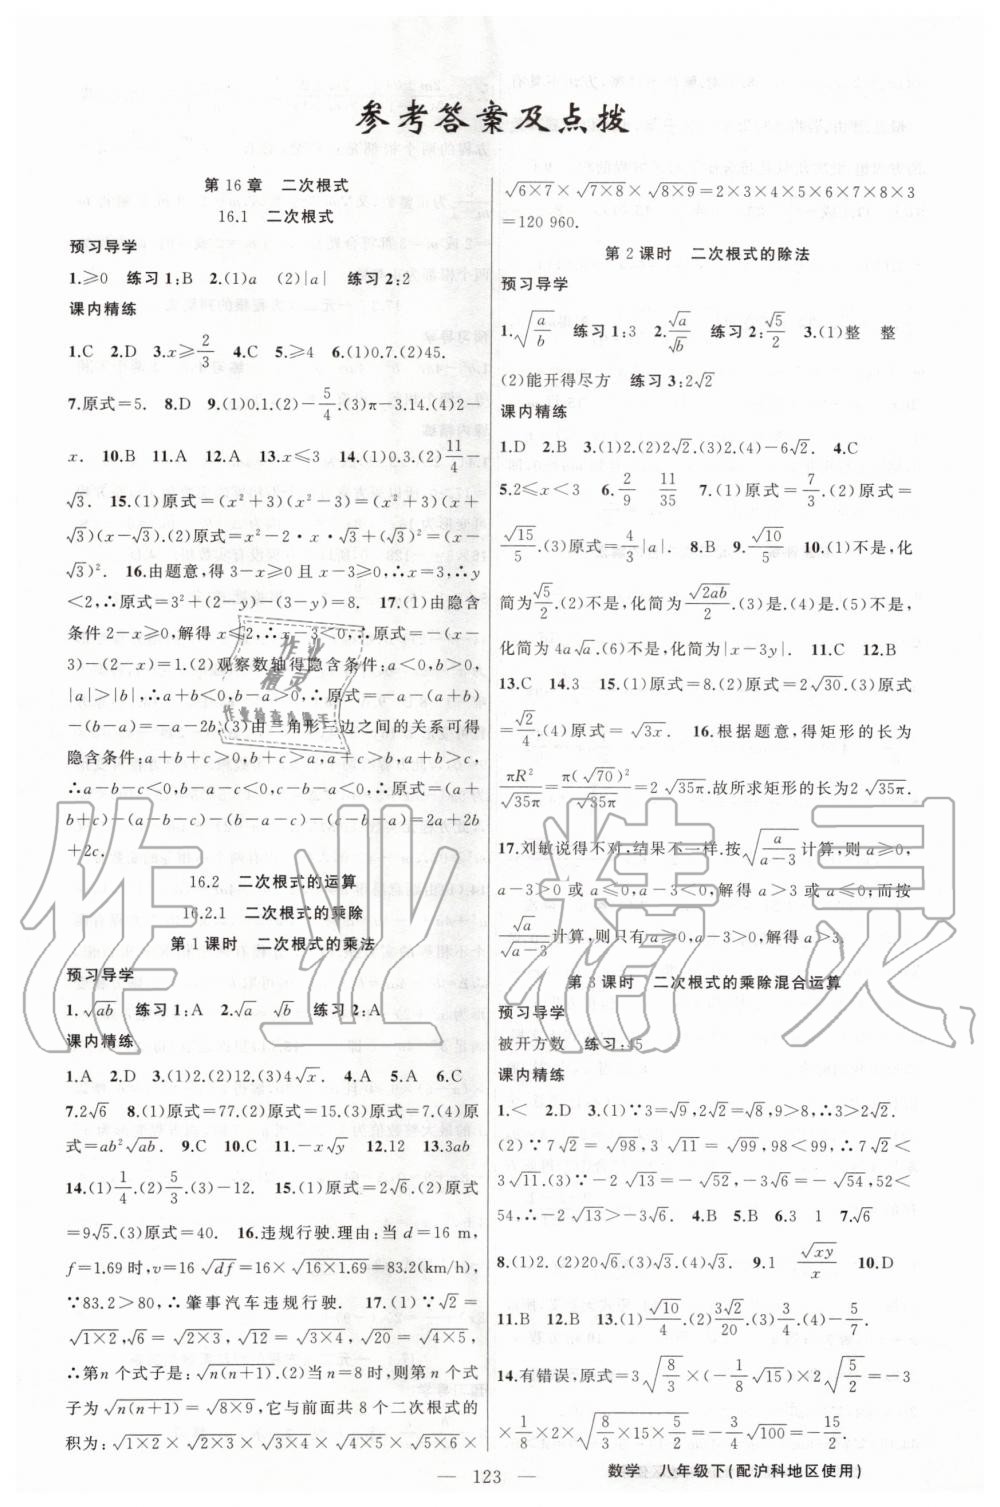 参考答案及点拨
第16章 二次根式
16.1 二次根式
预习导学
1.≥0 练习1:B 2.(1)a (2)|a| 练习2:2
课内精练
1.C 2.D 3.x≥2/3 4.C 5.≥4 6.(1)0.7.(2)45.
7.原式=5. 8.D 9.(1)0.1.(2)-5/4.(3)π-3.14.(4)2-
x. 10.B 11.A 12.A 13.x≤3 14.(1)0.3.(2)11/4-
√3. 15.(1)原式=(x²+3)(x²-3)=(x²+3)(x+
√3)(x-√3).(2)原式=x²-2·x·√3+(√3)²=(x-
√3)². 16.由题意,得3-x≥0且x-3≥0,∴x=3,∴y
<2,∴原式=3²+(2-y)-(3-y)=8. 17.(1)由隐含
条件2-x≥0,解得x≤2,∴x-3<0,∴原式=-(x-
3)-(2-x)=1.(2)观察数轴得隐含条件:a<0,b>0,
|a|>|b|,∴a+b<0,b-a>0,∴原式=-a-(a+b)
-(b-a)=-a-2b.(3)由三角形三边之间的关系可得
隐含条件:a+b+c>0,b+c>a,a+c>b,a+b>c,
∴a-b-c<0,b-a-c<0,c-b-a<0,∴原式=(a+
b+c)-(a-b-c)-(b-a-c)-(c-b-a)=2a+2b
+2c.
16.2 二次根式的运算
16.2.1 二次根式的乘除
第1课时 二次根式的乘法
预习导学
1.√ab 练习1:A 2.√a √b 练习2:A
课内精练
1.A 2.D 3.(1)2.(2)12.(3)4√x. 4.A 5.A 6.C
7.2√6 8.(1)原式=77.(2)原式=15.(3)原式=7.(4)原
式=ab²√ab. 9.C 10.C 11.-x√y 12.12 13.3ab
14.(1)1/4.(2)5/3.(3)-12. 15.(1)原式=2√6.(2)原式
=9√5.(3)原式=40. 16.违规行驶.理由:当d=16 m,
f=1.69时,v=16√df=16×√16×1.69=83.2(km/h),
∵83.2>80,∴肇事汽车违规行驶. 17.(1)∵√2=
√1×2,√6=√2×3,√12=√3×4,√20=√4×5,
∴第n个式子是:√n(n+1).(2)当n=8时,则第n个式
子为√n(n+1)=√8×9,它与前面共8个二次根式的
积为:√1×2×√2×3×√3×4×√4×5×√5×6×
√6×7×√7×8×√8×9=2×3×4×5×6×7×8×3
=120 960.
第2课时 二次根式的除法
预习导学
1.√(a/b) 练习1:3 2.√a/√b 练习2:√5/2 3.(1)整 整
(2)能开得尽方 练习3:2√2
课内精练
1.D 2.B 3.(1)2.(2)2√2.(3)2.(4)-6√2. 4.C
5.2≤x<3 6.2/9 11/35 7.(1)原式=7/3.(2)原式=
√15/5.(3)原式=4/3|a|. 8.B 9.√10/5 10.(1)不是,化
简为√5/2.(2)不是,化简为√2ab/2.(3)是.(4)是.(5)不是,
化简为4a√a.(6)不是,化简为|x-3y|. 11.C 12.B
13.C 14.3 15.(1)原式=8.(2)原式=2√30.(3)原式
=√2/4.(4)原式=√3x. 16.根据题意,得矩形的长为
πR²/√35π=π(√70)²/√35π=2√35π.故所求矩形的长为2√35π.
17.刘敏说得不对,结果不一样.按√(a/(a-3))计算,则a≥0,
a-3>0或a≤0,a-3<0,解得a>3或a≤0;而按
√a/√a-3计算,则只有a≥0,a-3>0,解得a>3.
第3课时 二次根式的乘除混合运算
预习导学
被开方数 练习:5
课内精练
1.< 2.D 3.(1)∵3=√9,2√2=√8,9>8,∴3>2√2.
(2)∵7√2=√98,3√11=√99,98<99,∴7√2<
3√11.(3)∵-2√13=-√52,-3√6=-√54,52<
54,∴-2√13>-3√6. 4.B 5.B 6.3 1 7.√6
8.(1)2.(2)20√6.(3)√3.(4)√3. 9.1 √xy/x 10.D
11.B 12.B 13.(1)√10/4.(2)3√2/20.(3)4/3.(4)-5/7.
14.有错误,原式=3√(8/3)×√15×(-1/8√(5/2))=-3
×1/8×2×√(8/3×15×5/2)=-3/4×√100=-15/2.
123
数学 八年级下(配沪科地区使用)
作业精灵